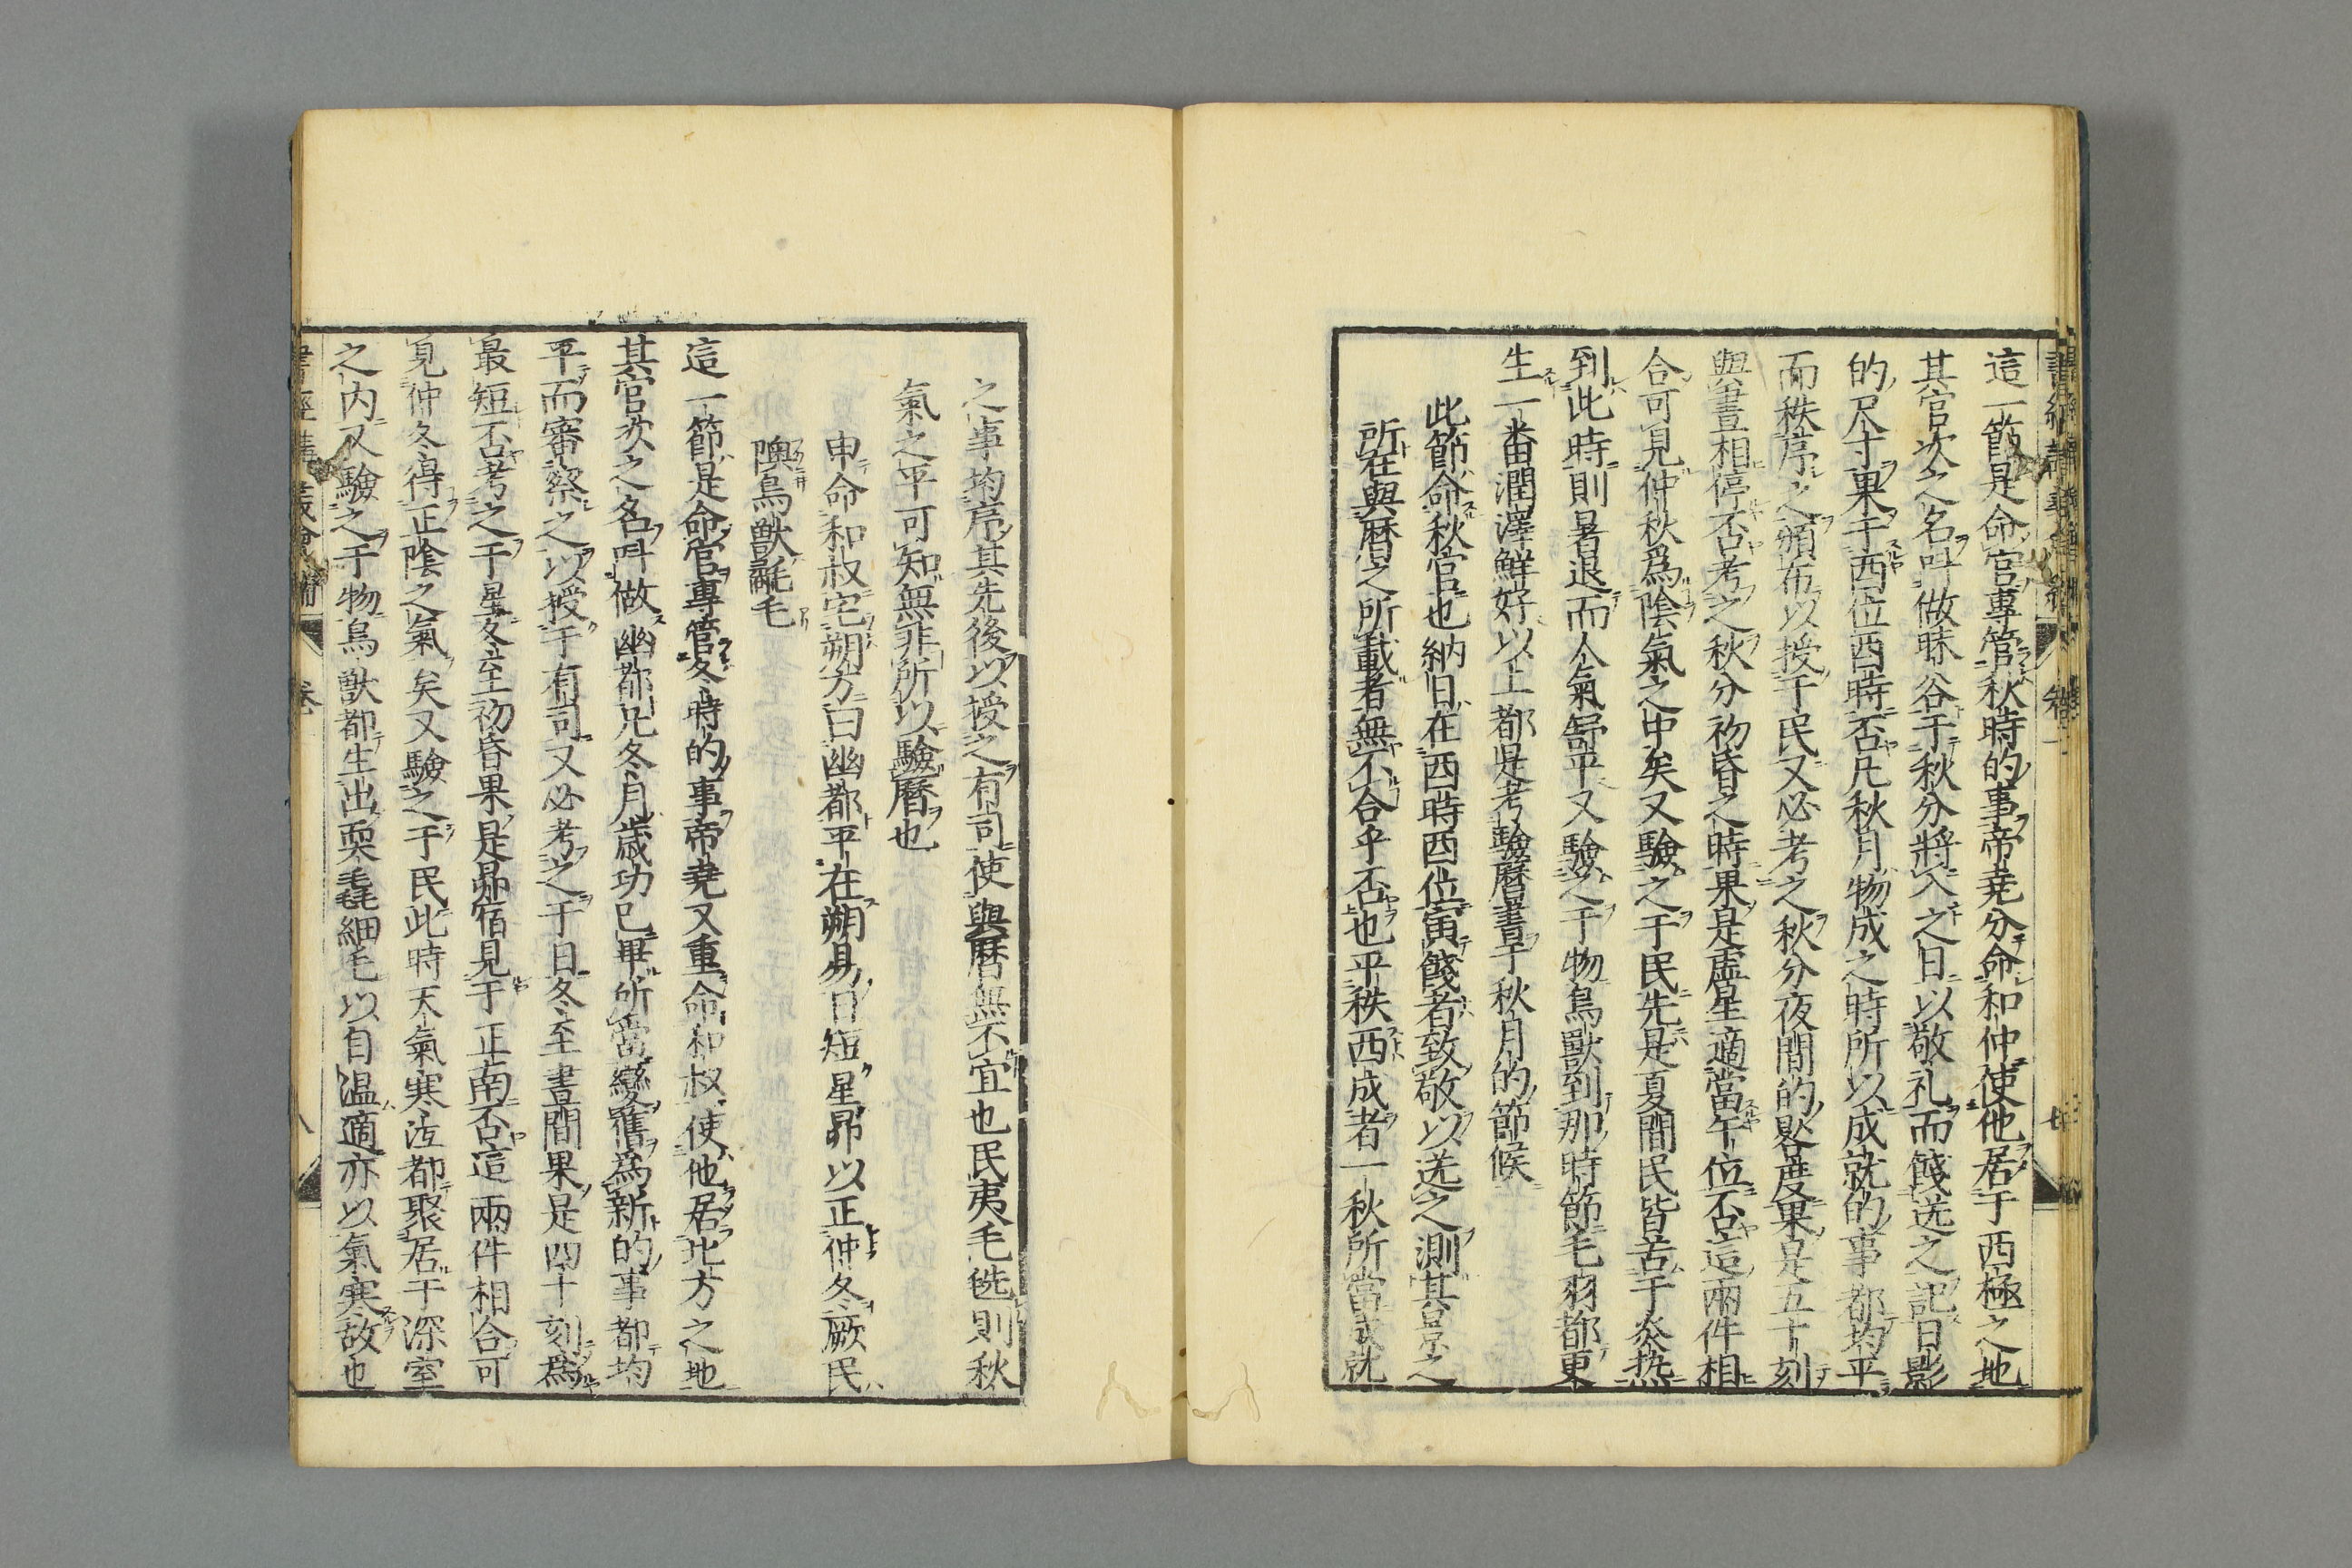 這一節是命官專管秋時的事帝堯分命和仲使他居于西極之地
其官次之名呌做昧谷于秋分將入之日以敬礼而餞送之記日影
的尺寸果于酉位酉時否凡秋月物成之時所以成就的事都均平
而秩序之頒布以授于民又必考之秋分夜間的晷度果是五十刻
與晝相停否考之秋分初昏之時果是虛星適當午位否這兩件相
合可見仲秋爲陰氣之中矣又驗之于民先是夏間民皆苦于炎热
到此時則暑退而人氣舒平又驗之于物鳥獸到那時節毛羽都更
生一番潤澤鮮好以上都是考驗曆書于秋月的節候
此節命秋官也納日在西時酉位寅餞者致敬以送之測其景之
所在與曆之所載者無不合乎否也平秩西成者一秋所當成就
之事均序其先後以授之有司使與曆無不宜也民夷毛毨則秋
氣之平可知無非所以驗曆也
申命和叔宅朔方曰幽都平在朔易日短星昴以正仲冬厥民
隩鳥獸氄毛
這一節是命官專管冬時的事帝堯又重命和叔使他居北方之地
其官次之名呌做幽都凡冬月歲功已畢所當變舊爲新的事都均
平而審察之以授于有司又必考之于日冬至晝間果是四十刻爲
最短否考之于星冬至初昏果是昴宿見于正南否這兩件相合可
見仲冬得正陰之氣矣又驗之于民此時天氣寒冱都聚居于深室
之内又驗之于物鳥獸都生出耎毳細毛以自温適亦以氣寒故也